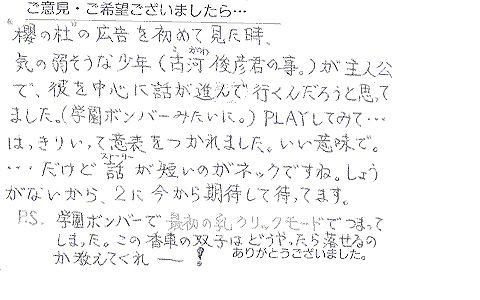 ご意見・ご希望ございましたら…
"櫻の杜"の広告を初めて見た時、
気の弱そうな少年(古河俊彦君の事。)が主人公
こがわ
で、彼を中心に話が進んで行くんだろうと思って
ました。(学園ボンバーみたいに。) PLAYしてみて…
はっきりいって意表をつかれました。いい意味で。
…だけど話が短いのがネックですね。しょう
ストーリー
がないから、2に今から期待して待ってます。
P.S. 学園ボンバーで最初の乳クリックモードでつまって
しまった。この香車の双子はどうやったら落せるの
か教えてくれ――!
ありがとうございました。